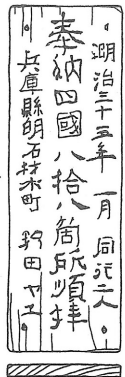 明治三十五年 一月 同行二人
奉納四國八拾八箇所順拝
兵庫縣明石材木町 田ヤエ